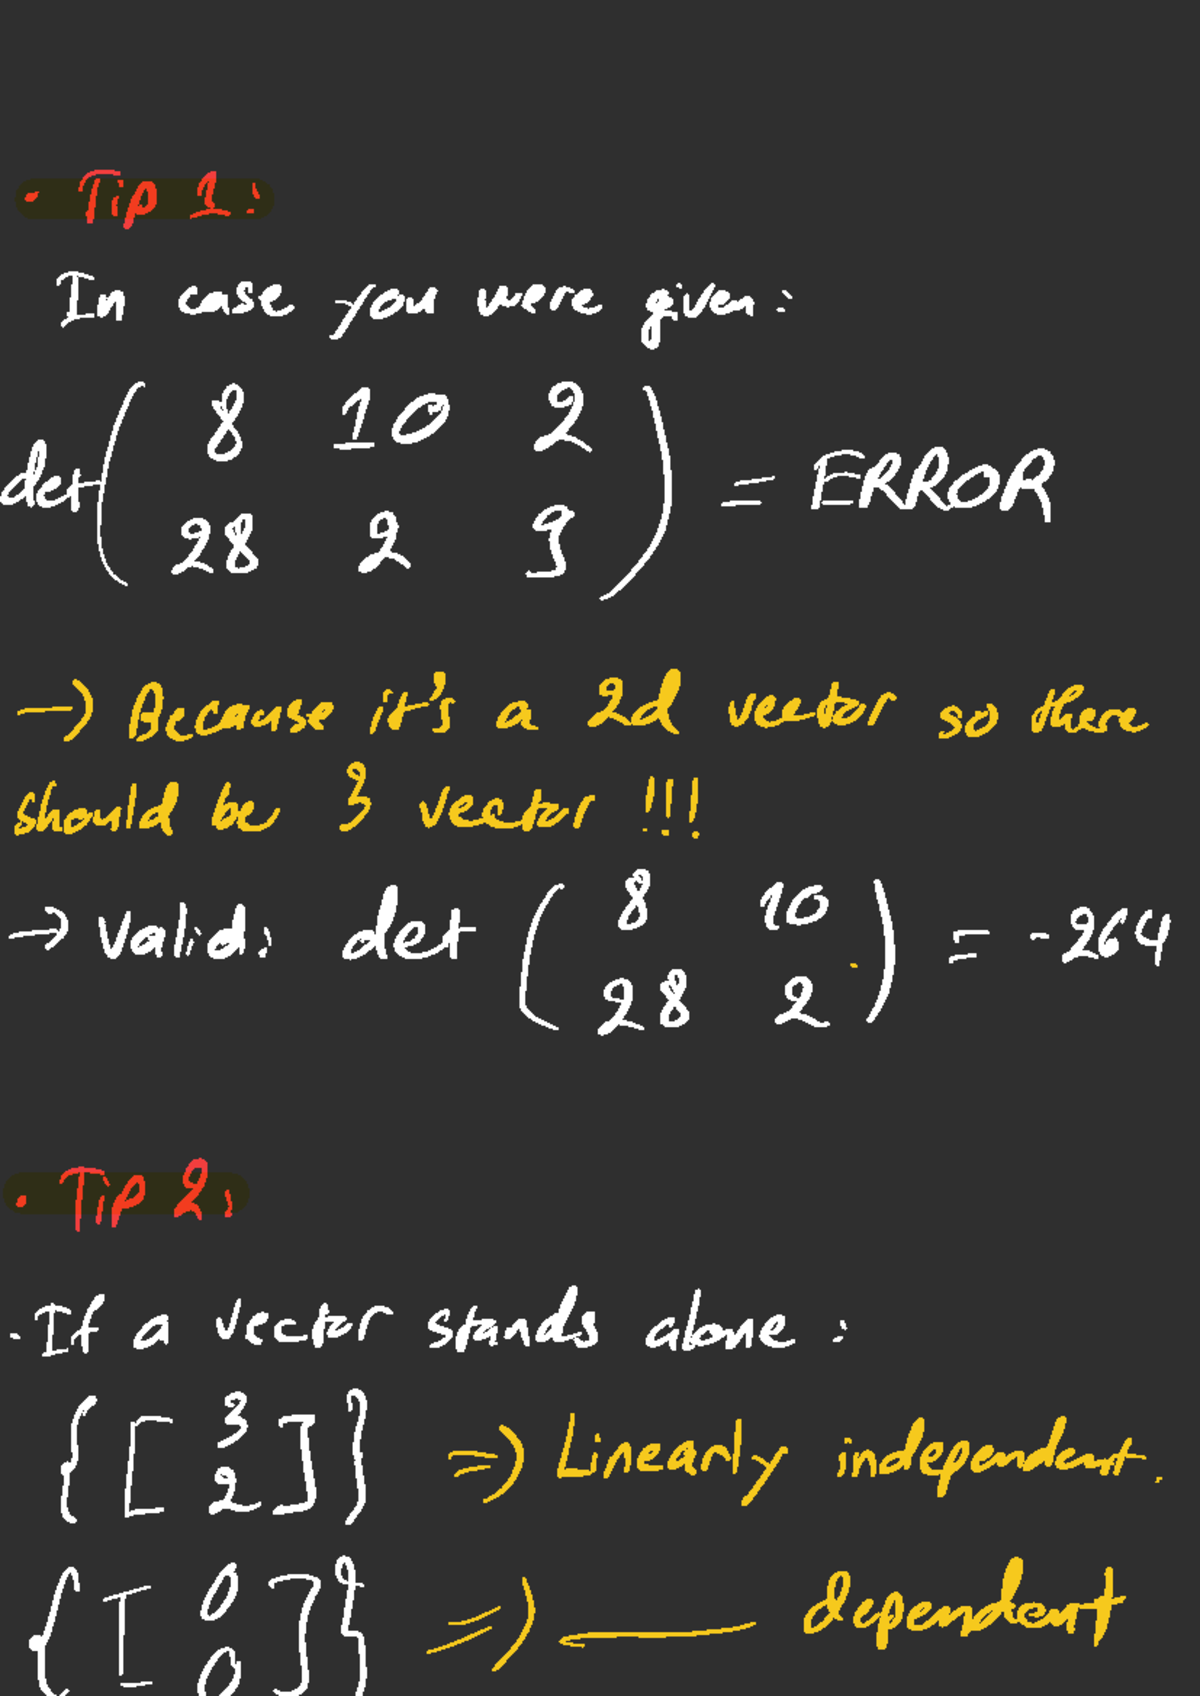 • Tip 1:
In case you were given:
det( 8 10 2
28 2 9 ) = ERROR
-> Because it's a 2d vector so there
should be 3 vector !!!
-> Valid: det ( 8 10
28 2 ) = -264
• Tip 2:
. If a vector stands alone :
{[ 3
2 ]} => Linearly independent.
{[ 0
0 ]} => —— dependent